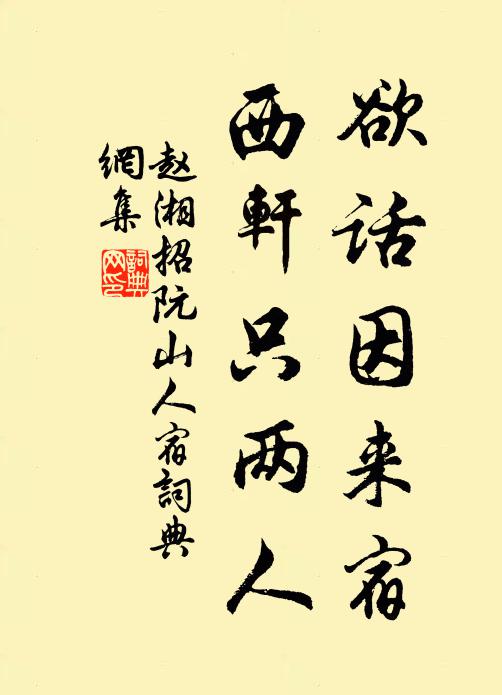 欲话因来宿
西軒只两人
赵湘招阮山人宿詞典
網集
詞典
网印